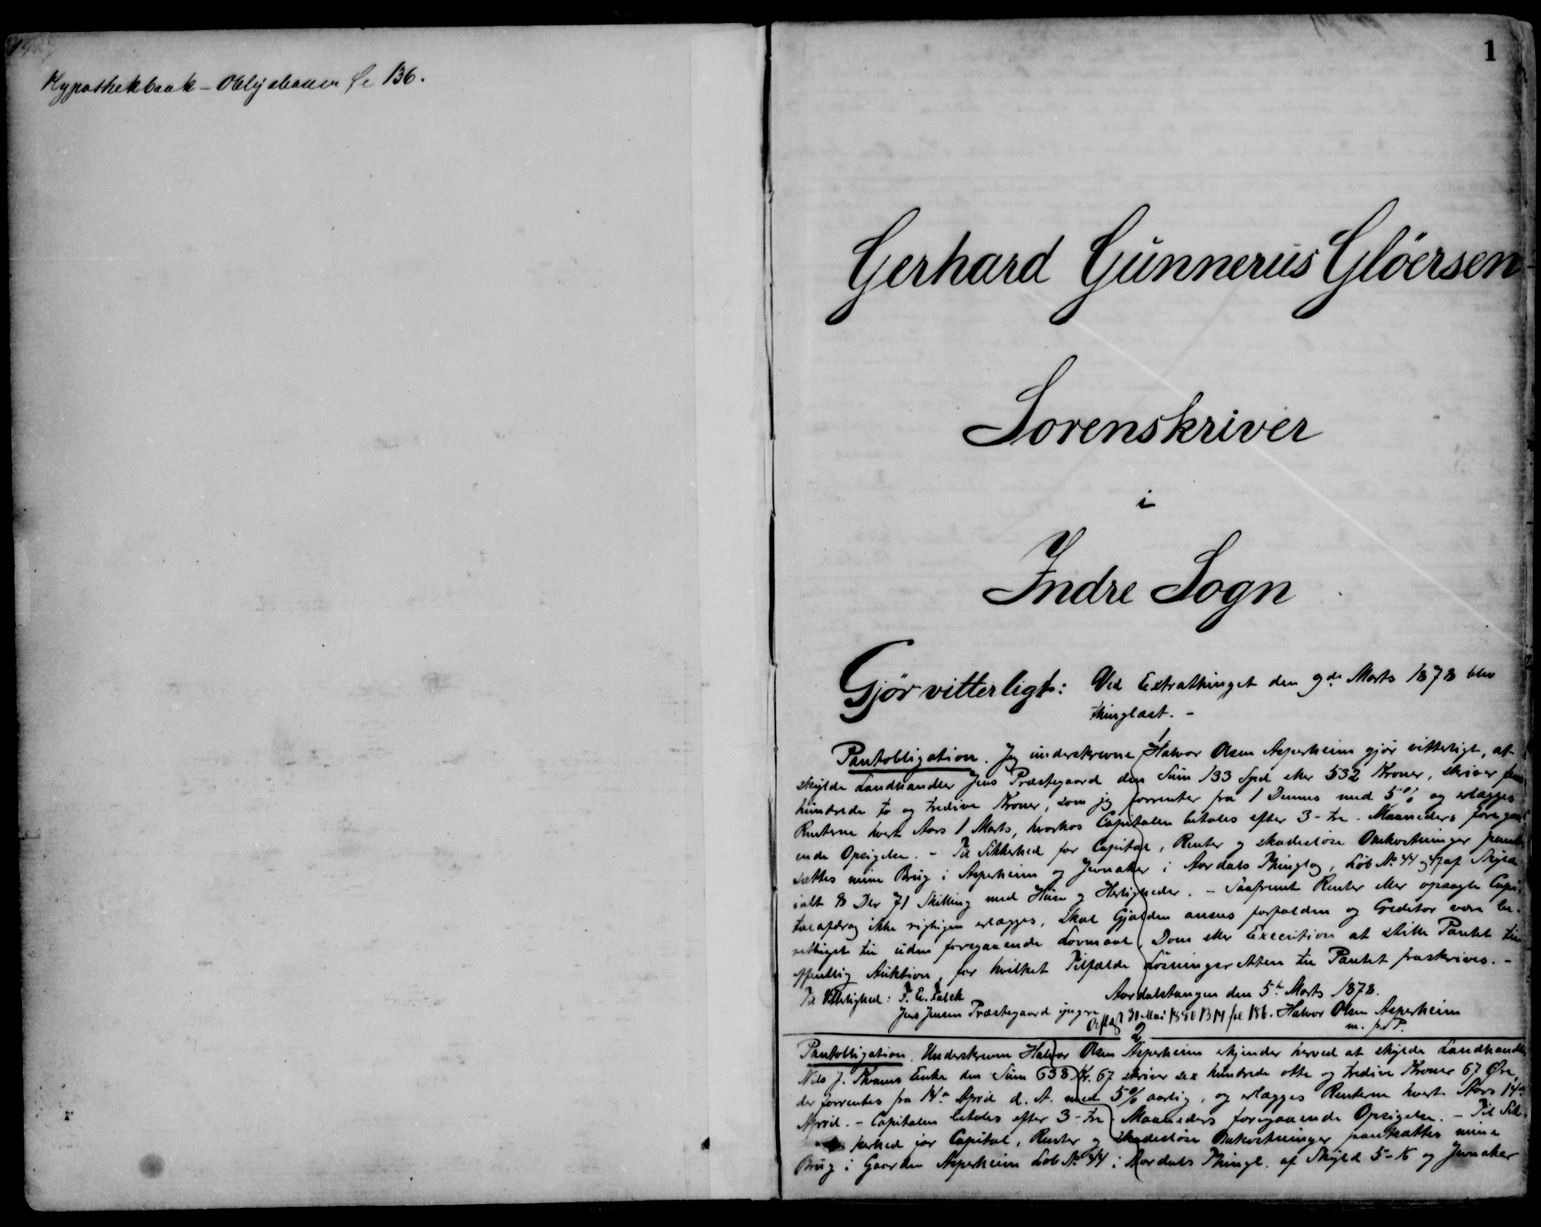 Hypothekbank-Obligationen fo 136.
1
Gerhard Gunnerus Glöersen
Sorenskriver
i
Indre Sogn
Gjør vitterligt: Ved Extrathinget den 9de Marts 1878 blev
thinglæst. -
1
Pantobligation. Jeg underskrevne Halvor Olsen Asperheim gjør vitterligt, at
skylde Landhandler Jens Præstegaard den Sum 133 Spd eller 532 Kroner, skriver fem
hundrede to og tredive Kroner, som jeg forrenter fra 1 Dennes med 5% og erlægges
Renterne hvert Aars 1 Marts, hvorhos Capitalen betales efter 3-tre Maaneders foregaa-
ende Opsigelse. - Til Sikkerhed for Capital, Renter og skadesløse Omkostninger pant-
sættes mine Brug i Asperheim og Jernaker i Aardals Thinglag, Løb No 44 og 47 af Skyld
ialt 2 Dlr 71 Skilling med Huse og Herligheder. - Saafremt Renter eller opsagte Capi-
talafdrag ikke rigtigen erlægges, skal Gjælden ansees forfalden og Creditor være be-
rettiget til uden foregaaende Lovmaal, Dom eller Execution at stille Pantet til
offentlig Auktion, for hvilket Tilfælde Løsningsretten til Pantet fraskrives. -
Aardalstangen den 5te Marts 1878.
Til Vitterlighed: F. E. Falck
Jens Jensen Præstegaard yngre Halvor Olsen Asperheim
m. p. P.
Aflyst 31 Mai 1880 fol 186.
2
Pantobligation. Underskrevne Halvor Olsen Asperheim erkjender herved at skylde Landhandler
Nils J. Kvams Enke den Sum 638 Kr. 67 skriver sex hundrede otte og tredive Kroner 67 Øre,
der forrentes fra 14de April d. A. med 5% aarlig, og erlægges Renterne hvert Aars 14de
April. - Capitalen betales efter 3-tre Maaneders foregaaende Opsigelse. - Til Sik-
kerhed for Capital, Renter og skadesløse Omkostninger pantsættes mine
Brug i Gaarden Asperheim Løb No 44 i Aardals Thingl. af Skyld 5- og Jernaker